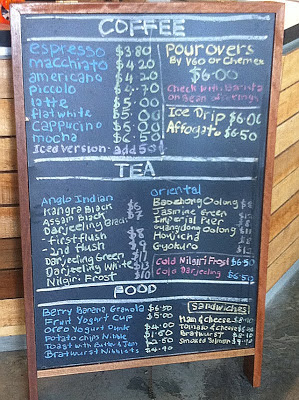 COFFEE
espresso $3.80
macchiato $4.20
americano $4.20
piccolo $4.70
latte $5.00
flat white $5.00
cappucino $5.00
mocha $6.50
Iced version add 50¢
pourovers
By V60 or Chemex
$6.00
Check with Barista
on Bean offerings
Ice Drip $6.00
Affogato $6.50
TEA
Anglo Indian
Kangra Black $6
Assam Black $7
Darjeeling Black
-first flush $8
-2nd flush $9
Darjeeling Green
Darjeeling White
Nilgiri Frost $10
oriental
Baozhong Oolong $8
Jasmine Green
Imperial Puer
Guangdong Oolong
Houjicha
Gyokuro
Cold Nilgiri Frost $6.50
Cold Darjeeling $6.50
FOOD
Berry Banana Granola $6.50
Fruit Yogurt Cup $5.00
Oreo Yogurt Dunk
Potato Chips Nibble
Toast with Butter & Jam
Bratwurst Nibblets
Sandwiches
Ham & cheese
Tomato & Cheese
Bratwurst
Smoked Salmon